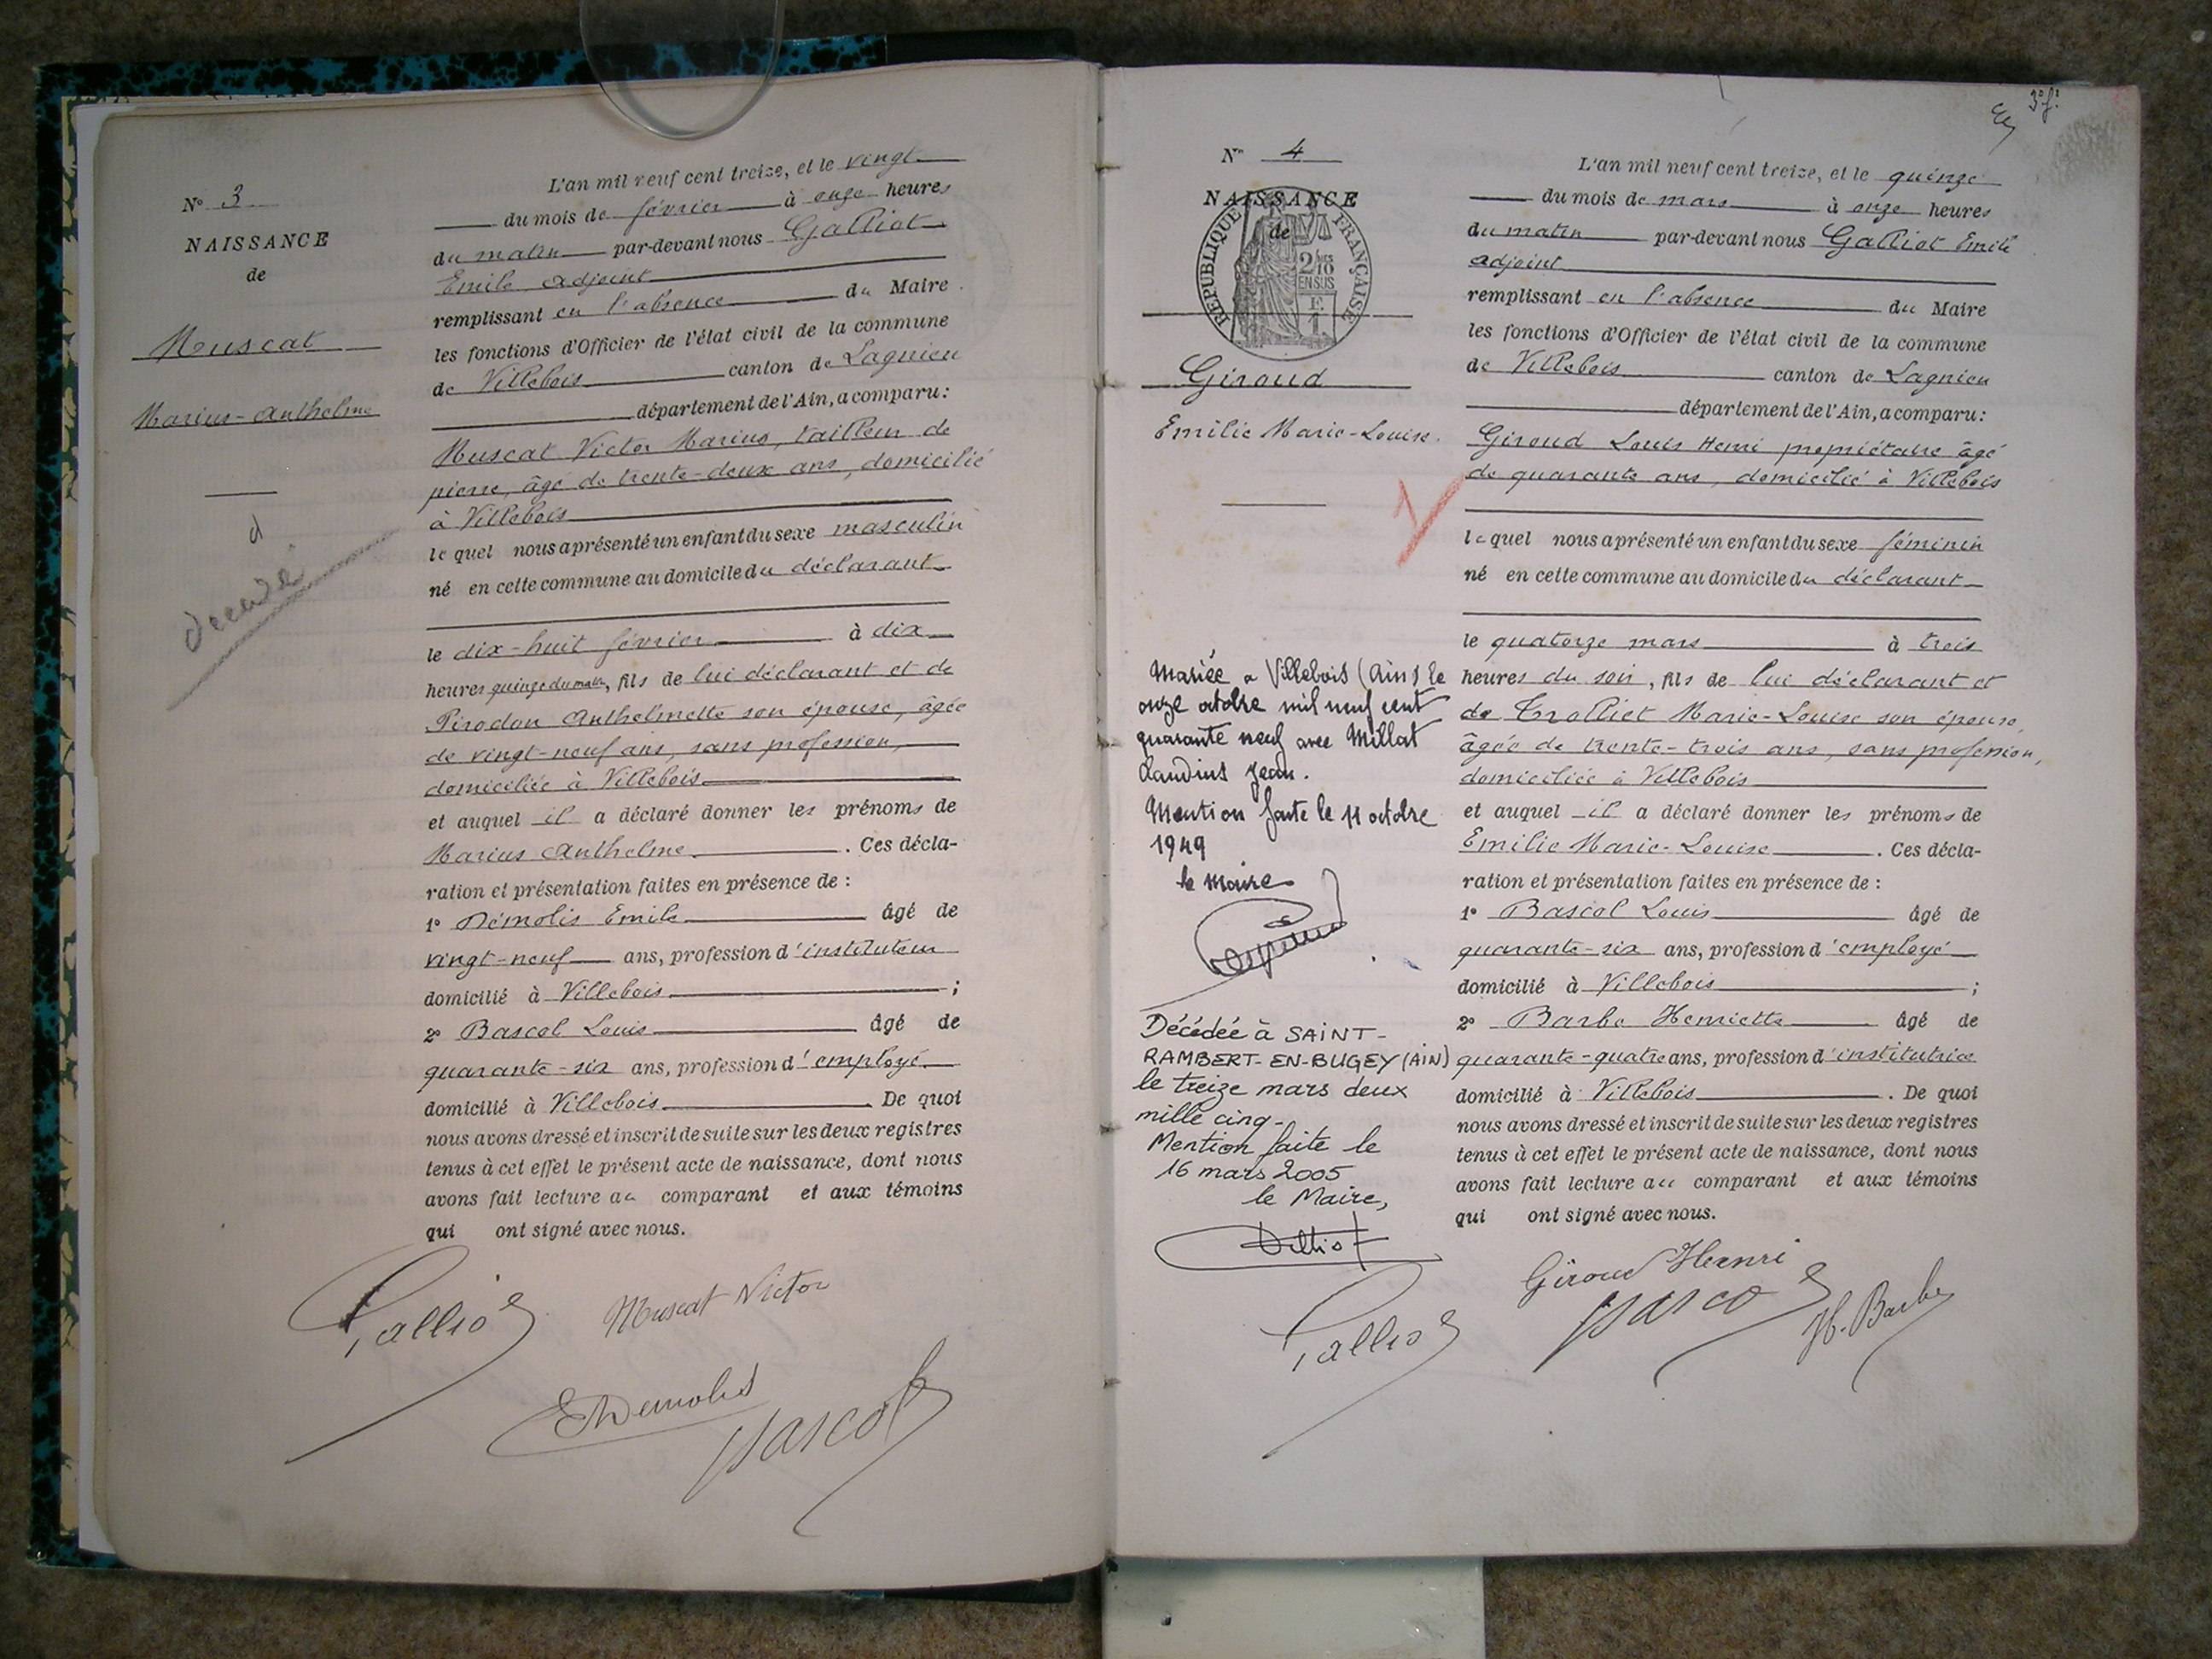 N° 3
NAISSANCE
de
Muscat
Marius-Anthelme
décédé
L'an mil neuf cent treize, et le vingt
du mois de février à onze heures
du matin par-devant nous Galliot
Emile adjoint
remplissant en l'absence du Maire
les fonctions d'Officier de l'état civil de la commune
de Villebois canton de Lagnieu
département de l'Ain, a comparu:
Muscat Victor Marius, tailleur de
pierre, âgé de trente-deux ans, domicilié
à Villebois
lequel nous a présenté un enfant du sexe masculin
né en cette commune au domicile du déclarant
le dix-huit février à dix
heures quinze du matin, fils de lui déclarant et de
Pirodon Anthelmette son épouse, âgée
de vingt-neuf ans, sans profession,
domiciliée à Villebois
et auquel il a déclaré donner les prénoms de
Marius Anthelme. Ces décla-
ration et présentation faites en présence de :
1° Démolis Emile âgé de
vingt-neuf ans, profession d'instituteur
domicilié à Villebois ;
2° Bascol Louis âgé de
quarante-six ans, profession d'employé
domicilié à Villebois De quoi
nous avons dressé et inscrit de suite sur les deux registres
tenus à cet effet le présent acte de naissance, dont nous
avons fait lecture au comparant et aux témoins
qui ont signé avec nous.
Galliot
Muscat Victor
EDemolis
Bascol
3e f.
N° 4
NAISSANCE
de
RÉPUBLIQUE FRANÇAISE
2/10
EN SUS
Giroud
Emilie Marie-Louise.
Mariée à Villebois (Ain) le
onze octobre mil neuf cent
quarante neuf avec Millat
Claudius Jean.
Mention faite le 11 octobre
1949
le Maire
Décédée à SAINT-
RAMBERT-EN-BUGEY (AIN)
le treize mars deux
mille cinq-
Mention faite le
16 mars 2005
le Maire,
L'an mil neuf cent treize, et le quinze
du mois de mars à onze heures
du matin par-devant nous Galliot Emile
adjoint
remplissant en l'absence du Maire
les fonctions d'Officier de l'état civil de la commune
de Villebois canton de Lagnieu
département de l'Ain, a comparu:
Giroud Louis Henri propriétaire âgé
de quarante ans, domicilié à Villebois
lequel nous a présenté un enfant du sexe féminin
né en cette commune au domicile du déclarant
le quatorze mars à trois
heures du soir, fils de lui déclarant et
de Trolliet Marie-Louise son épouse,
âgée de trente-trois ans, sans profession,
domiciliée à Villebois
et auquel il a déclaré donner les prénoms de
Emilie Marie-Louise. Ces décla-
ration et présentation faites en présence de :
1° Bascol Louis âgé de
quarante-six ans, profession d'employé
domicilié à Villebois ;
2° Barbe Henriette âgé de
quarante-quatre ans, profession d'institutrice
domicilié à Villebois. De quoi
nous avons dressé et inscrit de suite sur les deux registres
tenus à cet effet le présent acte de naissance, dont nous
avons fait lecture au comparant et aux témoins
qui ont signé avec nous.
Galliot
Giroud Henri
Bascol
H. Barbe